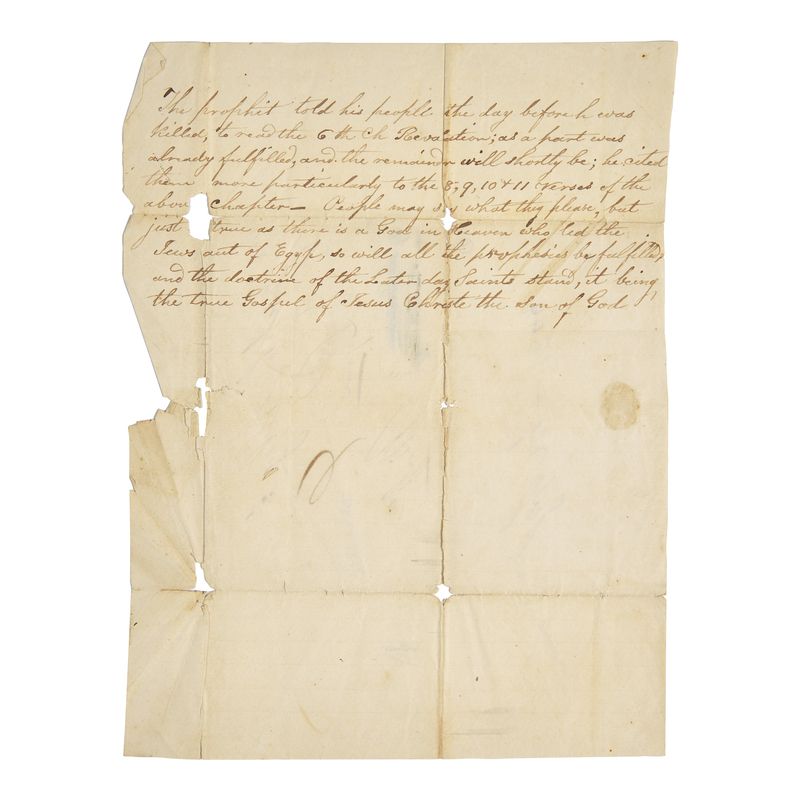 The prophit told his people the day before h was
killed, to read the 6th Ch Revalation; as a part was
already fulfilled, and the remaindr will shortly be; he cited
them more particularly to the 8, 9, 10 & 11 verses of the
abov chapter— People may say what they please, but
just true as there is a God in Heaven who led the
Jews out of Egypt, so will all the prophesies be fulfilld,
and the doctrine of the Later day Saints stand, it being
the true Gospel of Jesus Christe the Son of God